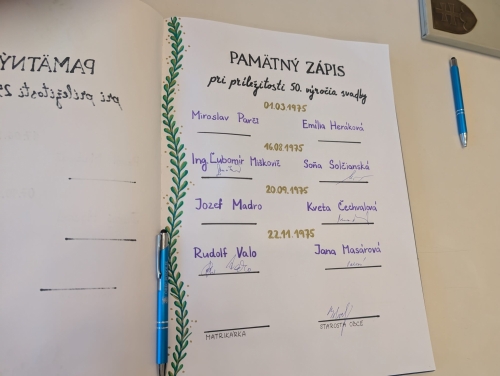 PAMÄTNÝ
pri príležitosti
PAMÄTNÝ ZÁPIS
pri príležitosti 50. výročia svadby
01.03.1975
Miroslav Emília Henáková
16.08.1975
Ing. Ľubomír Miškovič Soňa Solčianská
20.09.1975
Jozef Madro Kveta Čechvalová
22.11.1975
Rudolf Valo Jana Masárová
MATRIKÁRKA STAROSTA OBCE